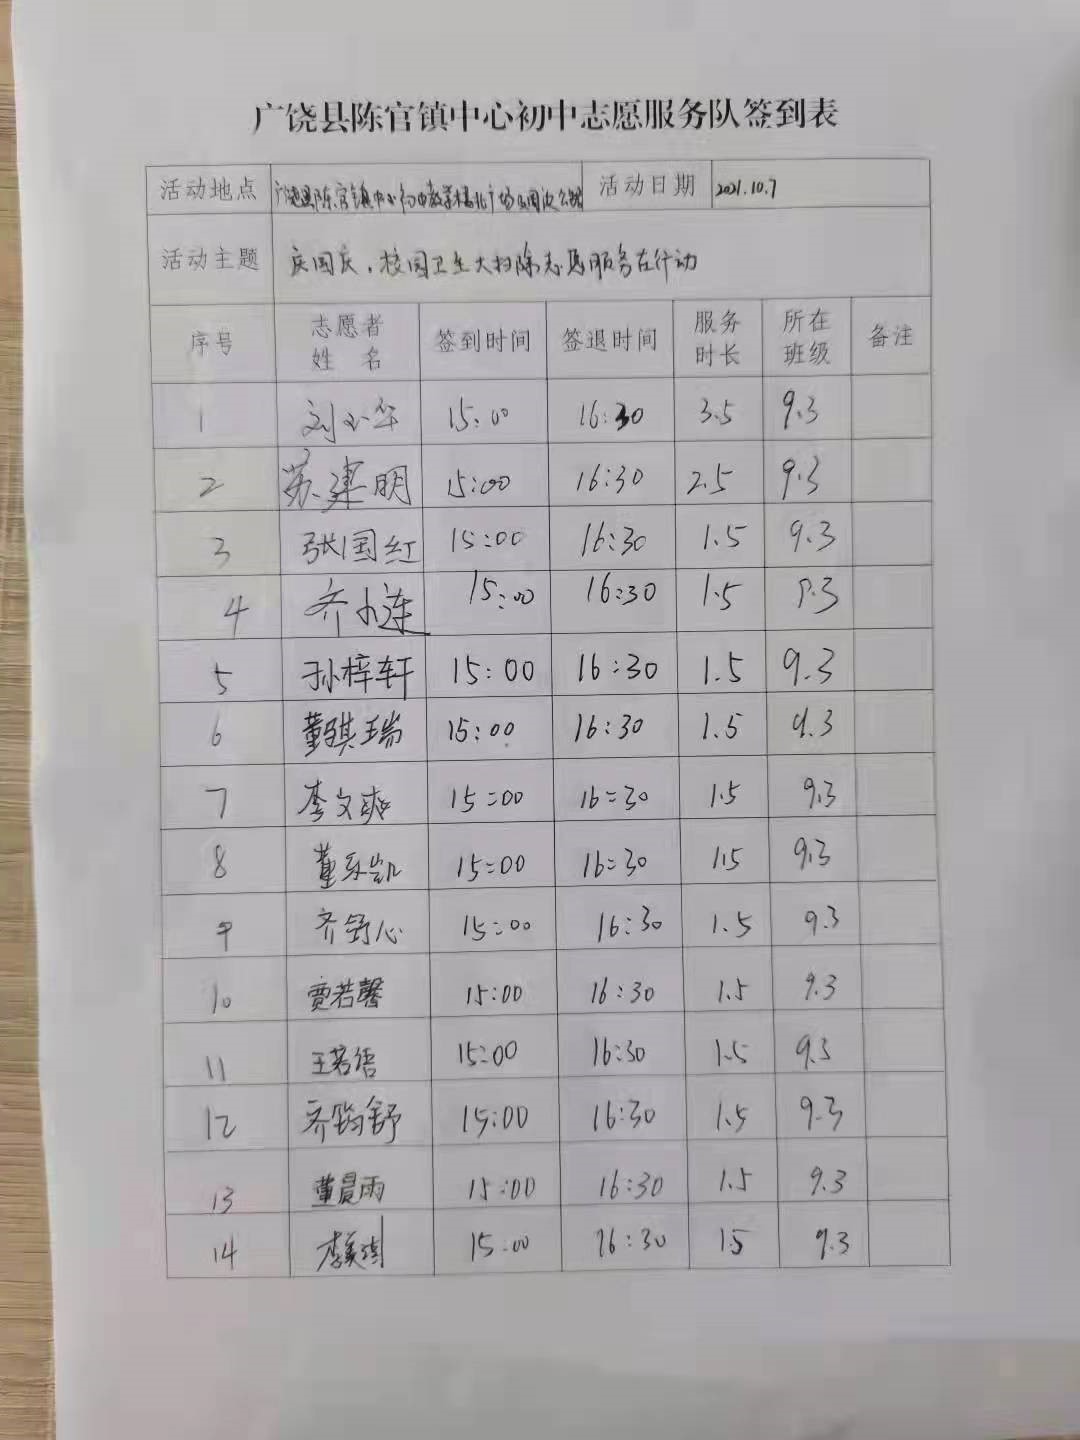 广饶县陈官镇中心初中志愿服务队签到表
活动地点 广饶县陈官镇中心初中教学楼北广场及周次公路 活动日期 2021.10.7
活动主题 庆国庆,校园卫生大扫除志愿服务在行动
序号 志愿者姓 名 签到时间 签退时间 服务时长 所在班级 备注
1 刘小华 15:00 16:30 3.5 9.3
2 苏建明 15:00 16:30 2.5 9.3
3 张国红 15:00 16:30 1.5 9.3
4 齐小连 15:00 16:30 1.5 9.3
5 孙梓轩 15:00 16:30 1.5 9.3
6 董骐瑞 15:00 16:30 1.5 9.3
7 李文爽 15:00 16:30 1.5 9.3
8 董乐凯 15:00 16:30 1.5 9.3
9 齐舒心 15:00 16:30 1.5 9.3
10 贾若馨 15:00 16:30 1.5 9.3
11 王若语 15:00 16:30 1.5 9.3
12 齐筠舒 15:00 16:30 1.5 9.3
13 董晨雨 15:00 16:30 1.5 9.3
14 李美 15:00 16:30 1.5 9.3